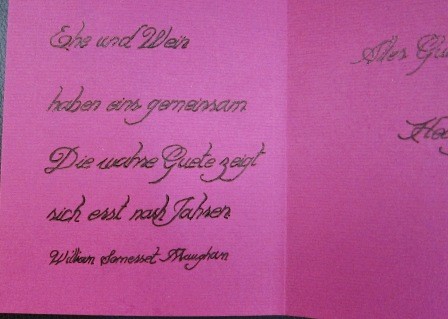 Ehe und Wein
haben eins gemeinsam
Die wahre Guete zeigt
sich erst nach Jahren
William Somerset Maughan
Alles Gu
Ho